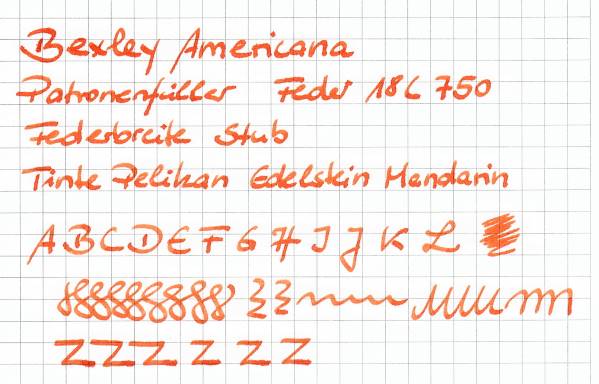 Bexley Americana
Patronenfüller Feder 18C 750
Federbreite Stub
Tinte Pelikan Edelstein Mandarin
A B C D E F G H I J K L
Z Z Z Z Z Z